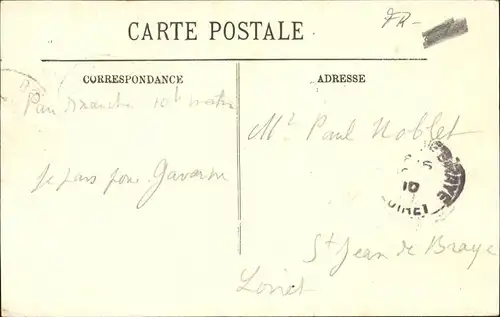 FR-
CARTE POSTALE
CORRESPONDANCE
ADRESSE
Pau Dimanche 10h matin
Je pars pour Gavarnie
Mr Paul Noblet
St Jean de Braye
Loiret
10
LOIRET